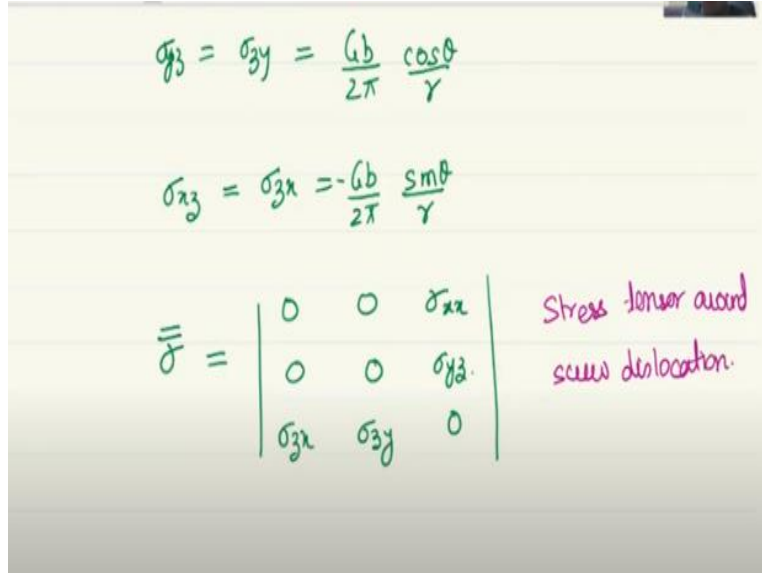 σyz = σzy = Gb/2π cosθ/r
σxz = σzx = -Gb/2π sinθ/r
σ̿ = | 0 0 σxx |
| 0 0 σyz. |
| σzx σzy 0 |
Stress tensor around
screw dislocation.